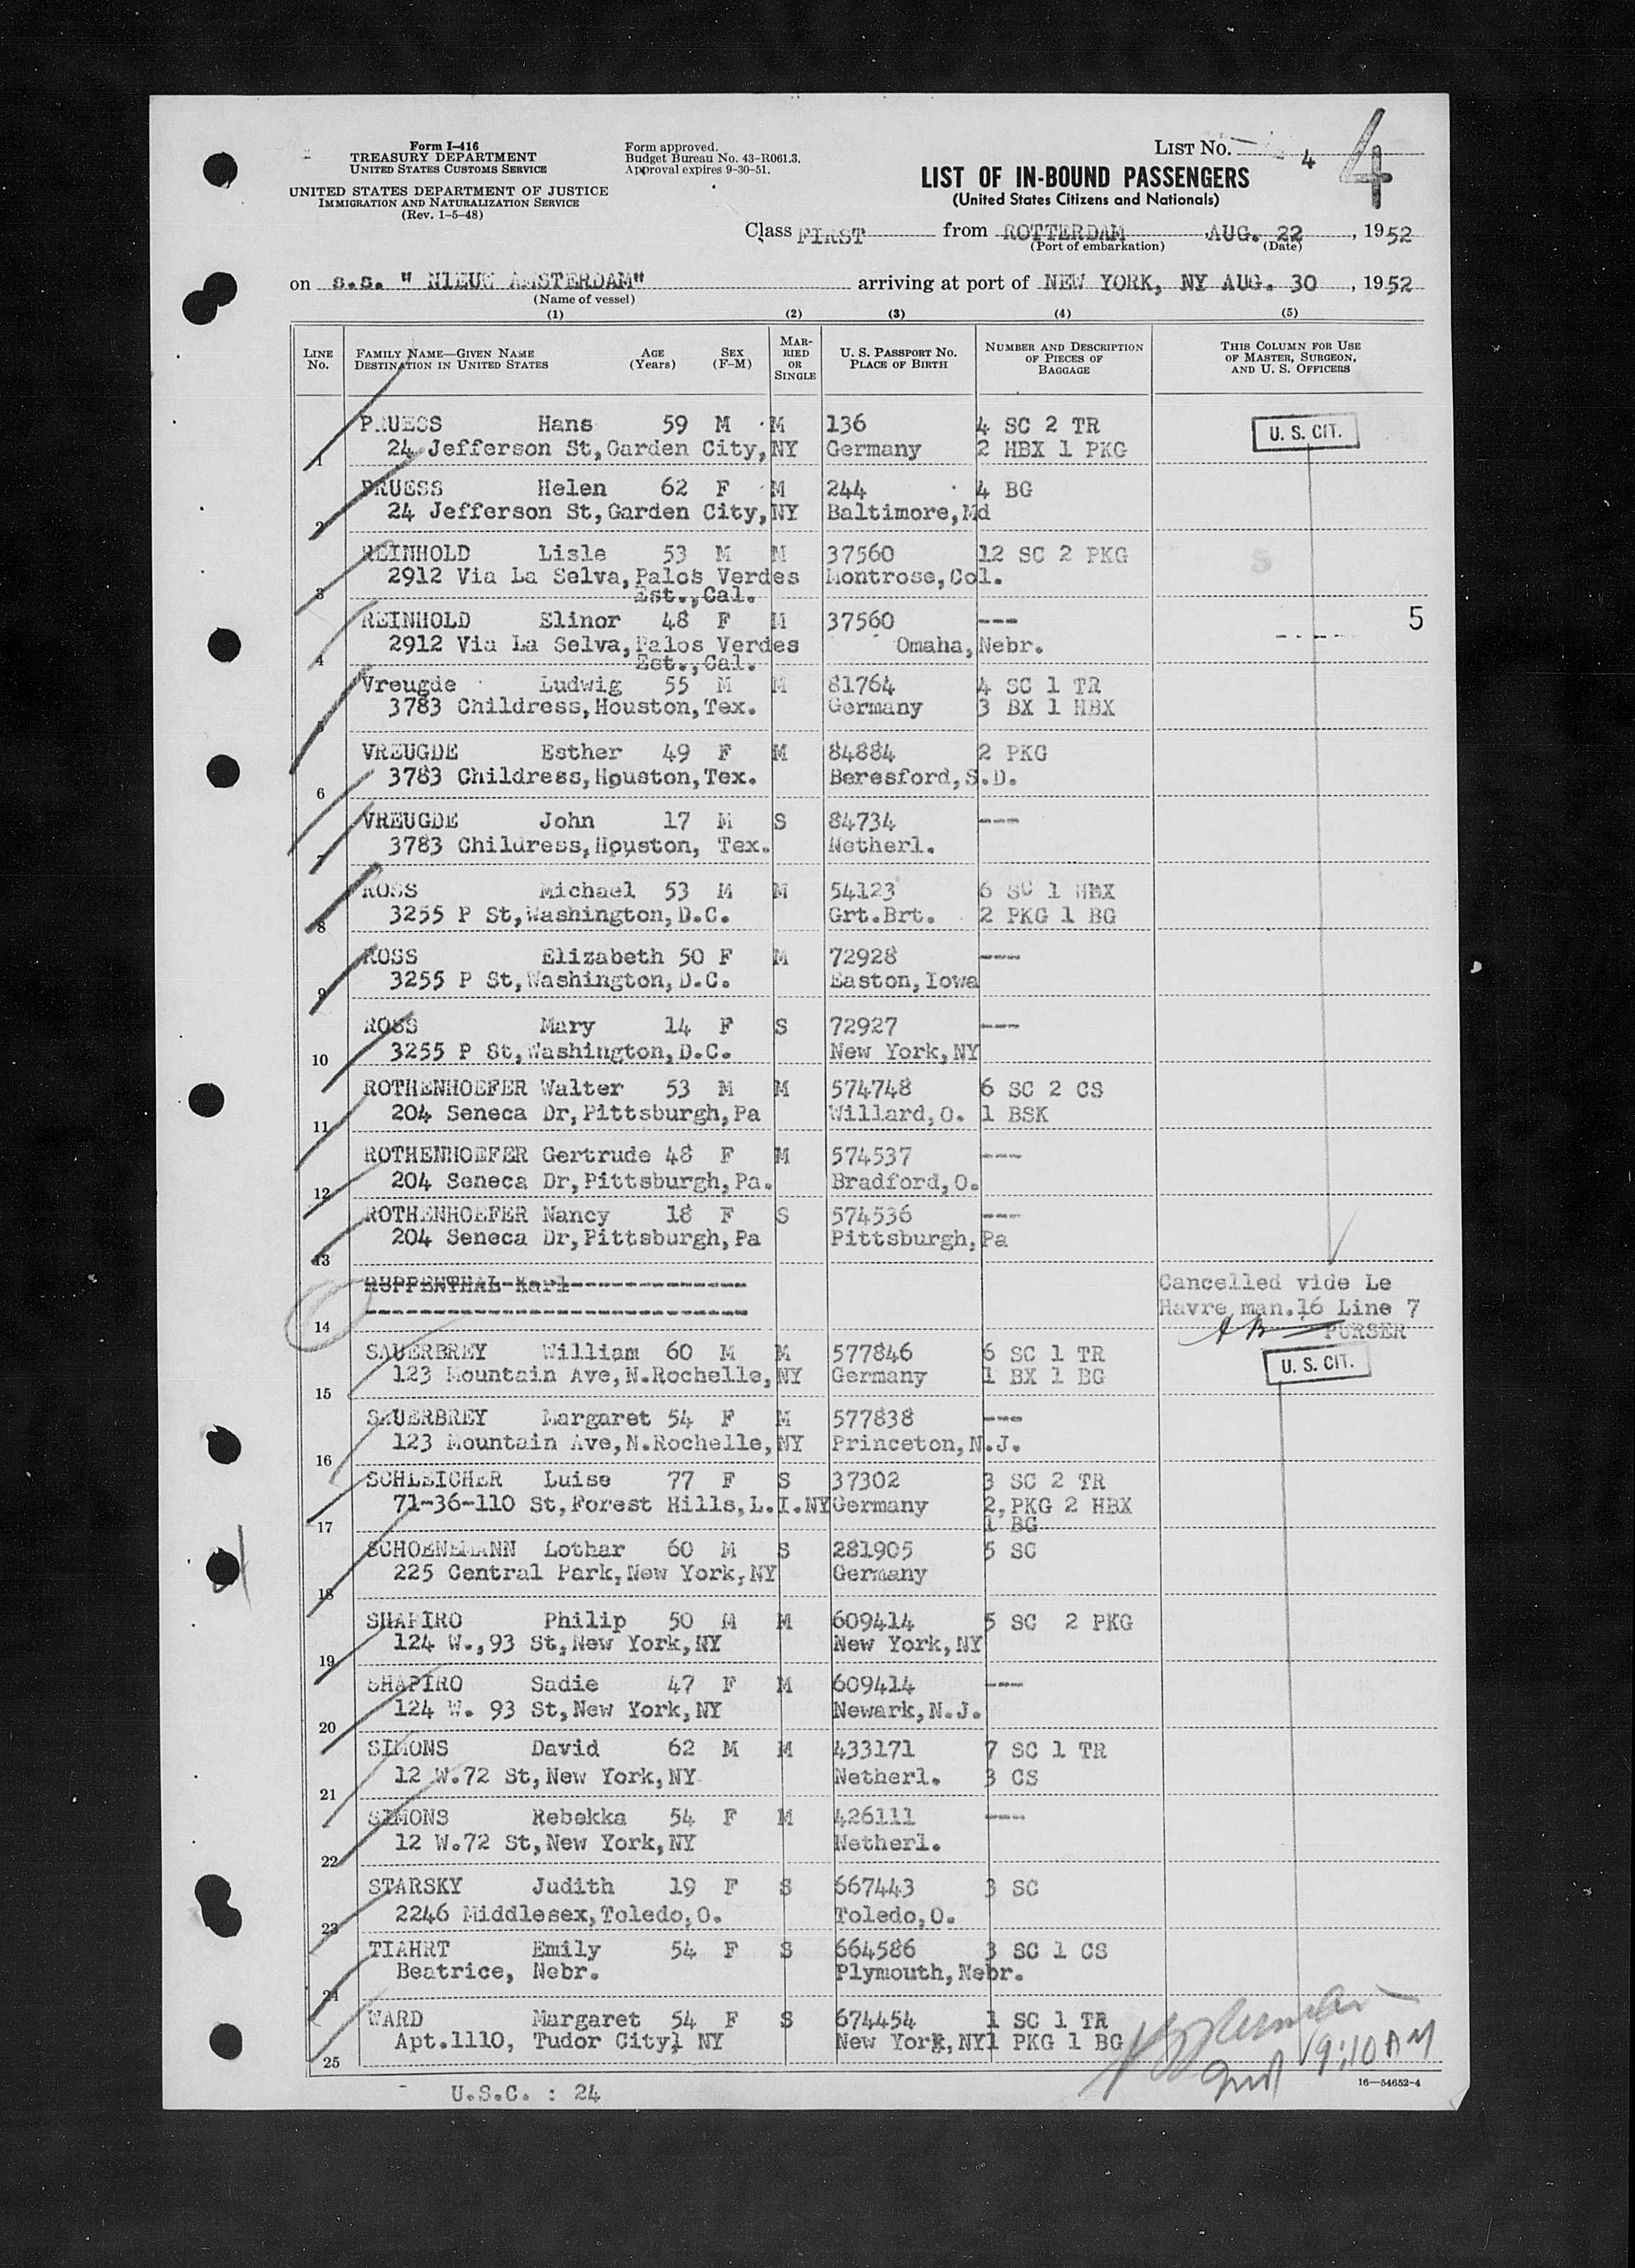 Form I-416
TREASURY DEPARTMENT
UNITED STATES CUSTOMS SERVICE
UNITED STATES DEPARTMENT OF JUSTICE
IMMIGRATION AND NATURALIZATION SERVICE
(Rev. 1-5-48)
Form approved.
Budget Bureau No. 43-R061.3.
Approval expires 9-30-51.
LIST NO. 4
4
LIST OF IN-BOUND PASSENGERS
(United States Citizens and Nationals)
Class FIRST from ROTTERDAM AUG. 22, 1952
(Port of embarkation) (Date)
on s.s. " NIEUW AMSTERDAM" arriving at port of NEW YORK, NY AUG. 30, 1952
(Name of vessel)
(1) (2) (3) (4) (5)
LINE No. FAMILY NAME—GIVEN NAME DESTINATION IN UNITED STATES AGE (Years) SEX (F-M) MARRIED OR SINGLE U. S. PASSPORT NO. PLACE OF BIRTH NUMBER AND DESCRIPTION OF PIECES OF BAGGAGE THIS COLUMN FOR USE OF MASTER, SURGEON, AND U. S. OFFICERS
PRUESS Hans 59 M M 136 4 SC 2 TR U. S. CIT.
1 24 Jefferson St,Garden City,NY Germany 2 HBX 1 PKG
PRUESS Helen 62 F M 244 4 BG
2 24 Jefferson St,Garden City,NY Baltimore,Md
REINHOLD Lisle 53 M M 37560 12 SC 2 PKG
2912 Via La Selva,Palos Verdes Montrose,Col.
3 Est.,Cal.
REINHOLD Elinor 48 F M 37560 --- 5
2912 Via La Selva,Palos Verdes Omaha,Nebr.
4 Est.,Cal.
Vreugde Ludwig 55 M M 81764 4 SC 1 TR
5 3783 Childress,Houston,Tex. Germany 3 BX 1 HBX
VREUGDE Esther 49 F M 84884 2 PKG
6 3783 Childress,Houston,Tex. Beresford,S.D.
VREUGDE John 17 M S 84734 ---
7 3783 Childress,Houston, Tex. Netherl.
ROSS Michael 53 M M 54123 6 SC 1 HBX
8 3255 P St,Washington,D.C. Grt.Brt. 2 PKG 1 BG
ROSS Elizabeth 50 F M 72928 ---
9 3255 P St,Washington,D.C. Easton,Iowa
ROSS Mary 14 F S 72927 ---
10 3255 P St,Washington,D.C. New York,NY
ROTHENHOEFER Walter 53 M M 574748 6 SC 2 CS
11 204 Seneca Dr,Pittsburgh,Pa Willard,O. 1 BSK
ROTHENHOEFER Gertrude 48 F M 574537 ---
12 204 Seneca Dr,Pittsburgh,Pa. Bradford,O.
ROTHENHOEFER Nancy 18 F S 574536 ---
13 204 Seneca Dr,Pittsburgh,Pa Pittsburgh,Pa
RUPPENTHAL Karl Cancelled vide Le
Havre man.16 Line 7
14 PURSER
SAUERBREY William 60 M M 577846 6 SC 1 TR U. S. CIT.
15 123 Mountain Ave,N.Rochelle,NY Germany 1 BX 1 BG
SAUERBREY Margaret 54 F M 577838 ---
16 123 Mountain Ave,N.Rochelle,NY Princeton,N.J.
SCHLEICHER Luise 77 F S 37302 3 SC 2 TR
71-36-110 St,Forest Hills,L.I.NY Germany 2,PKG 2 HBX
17 1 BG
SCHOENEMANN Lothar 60 M S 281905 5 SC
18 225 Central Park,New York,NY Germany
SHAPIRO Philip 50 M M 609414 5 SC 2 PKG
19 124 W.,93 St,New York,NY New York,NY
SHAPIRO Sadie 47 F M 609414 ---
20 124 W. 93 St,New York,NY Newark,N.J.
SIMONS David 62 M M 433171 7 SC 1 TR
21 12 W.72 St,New York,NY Netherl. 3 CS
SIMONS Rebekka 54 F M 426111 ---
22 12 W.72 St,New York,NY Netherl.
STARSKY Judith 19 F S 667443 3 SC
23 2246 Middlesex,Toledo,O. Toledo,O.
TIAHRT Emily 54 F S 664586 3 SC 1 CS
24 Beatrice, Nebr. Plymouth,Nebr.
WARD Margaret 54 F S 674454 1 SC 1 TR
25 Apt.1110, Tudor City, NY New York,NY 1 PKG 1 BG
9:10 AM
16—54652-4
U.S.C. : 24